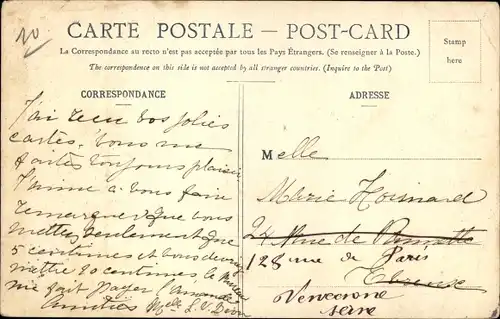 CARTE POSTALE — POST-CARD
La Correspondance au recto n'est pas acceptée par tous les Pays Étrangers. (Se renseigner à la Poste.)
The correspondence on this side is not accepted by all stranger countries. (Inquire to the Post)
Stamp
here
CORRESPONDANCE
J'ai reçu vos jolies
cartes. vous me
faites toujours plaisir
J'aime a vous faire
remarquer que vous
mettez seulement que
5 centimes et vous devez
mettre 10 centimes le
me fait payer l'amende
Amitiés Melle L. V.
ADRESSE
Melle
Marie
24 Rue de
128 rue de Paris